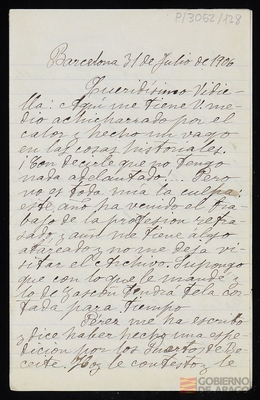 P/3052/128
Barcelona 31 de Julio de 1906
Queridísimo Vidie-
lla: Aquí me tiene V. me-
dio achicharrado por el
calor y hecho un vago
en las cosas historiales.
¡Con decirle que no tengo
nada adelantado!.. Pero
no es toda mía la culpa:
este año ha venido el tra-
bajo de la profesion retra-
sado y aun me tiene algo
atareado y no me deja vi-
sitar el Archivo. Supongo
que con lo que le mandé
lo de Gascón tendrá tela cor-
tada para tiempo
Pérez me ha escrito
y dice haber hecho una espe-
dicion por los Puertos de Be-
ceite. Hoy le contesto y le
GOBIERNO
DE ARAGON